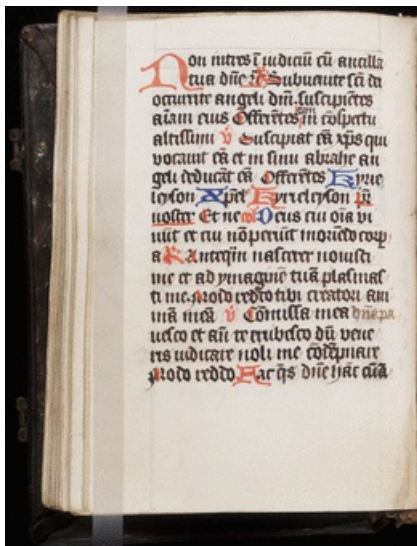 Non intres ī iudiciū cū ancilla
tua dn̄e R̄ Subuenite scī dei
occurrite angeli dnī. suscipiētes
aīam eius Offerētes eam in cōspectu
altissimi v̄ Suscipiat eā xp̄s qui
vocauit eā et in sinu abrahe an
geli deducāt eā Offerētes Kyrie
leyson Xpēl Kyrieleyson pr̄
noster Et ne col Deus cui oīa vi
uūt et cui nō pereūt moriēdo corp
a R̄ Anteqīn nascerer nouisti
me et ad ymaginē tuā plasmas
ti me. Modo reddo tibi creatori ani
mā meā v̄ Cōmissa mea dn̄e pa
uesco et ān te erubesco dū vene
ris iudicare noli me cōdēpnare
Modo reddo Fac qs̄ dn̄e hāc cum